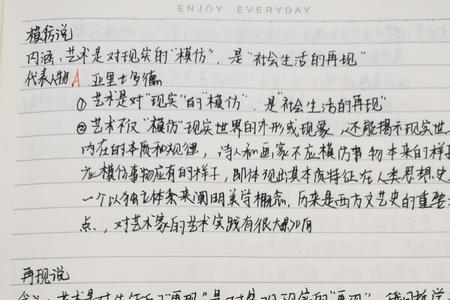 ENJOY EVERYDAY
模仿说
内涵:艺术是对现实的"模仿",是"社会生活的再现"
代表人物 A 亚里士多德
①艺术是对"现实"的"模仿",是"社会生活的再现"
②艺术不仅"模仿"现实世界的外形或现象,还能揭示现实世
内在的本质和规律,诗人和画家不应模仿事物本来的样
应模仿事物应有的样子,即体现出其本质特征.在人类思想史
一个以独立体系来阐明美学概念,历来是西方文艺史的重要
点,对艺术家的艺术实践有很大影响
再现说
艺术是对 "再现"是对客观现实的"再现"